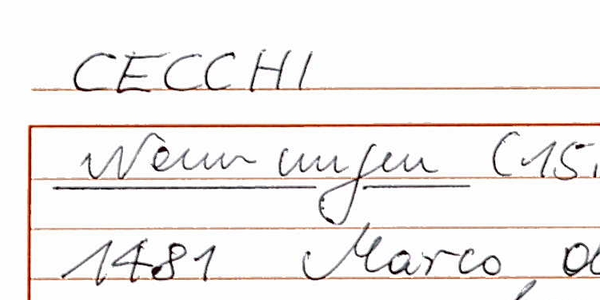 CECCHI
Nennungen (15.
1481 Marco